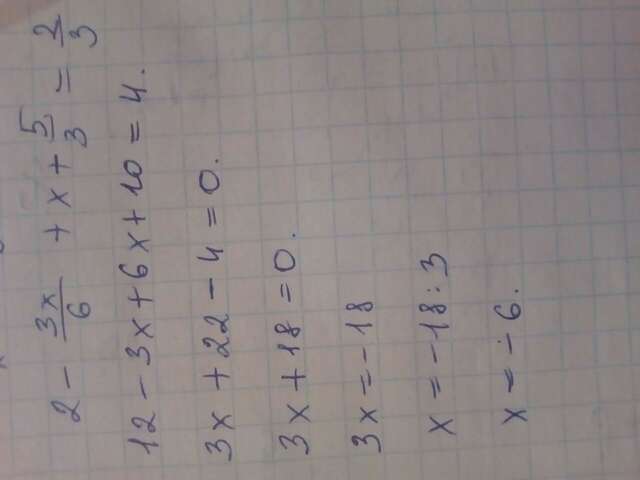 2 - 3x/6 + x + 5/3 = 2/3
12 - 3x + 6x + 10 = 4.
3x + 22 - 4 = 0.
3x + 18 = 0.
3x = -18
x = -18:3
x = -6.